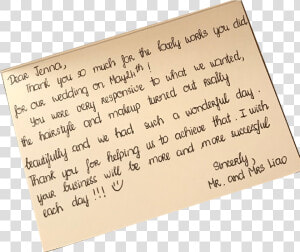 Dear Jenna,
Thank you so much for the lovely works you did
for our wedding on May 24th!
You were very responsive to what we wanted,
the hairstyle and makeup turned out really
beautifully and we had such a wonderful day.
Thank you for helping us to achieve that. I wish
your business will be more and more successful
each day!!! ☺
Sincerely,
Mr. and Mrs Liao